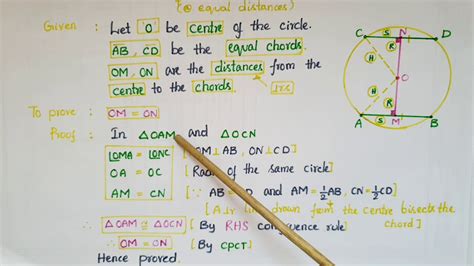 (@ equal distances)
Given : Let 'O' be centre of the circle.
AB, CD be the equal chords.
OM, ON are the distances from the
centre to the chords.
To prove : OM = ON
Proof : In △OAM and △OCN
∠OMA = ∠ONC [OM⊥AB, ON⊥CD]
OA = OC [Radii of the same circle]
AM = CN [∵ AB = CD and AM = ½AB, CN = ½CD]
[A ⊥r line drawn from the centre bisects the chord]
∴ △OAM ≅ △OCN [By RHS congruence rule]
∴ OM = ON [By CPCT]
Hence proved.
C S N D
R
H
O
H R
A S M B